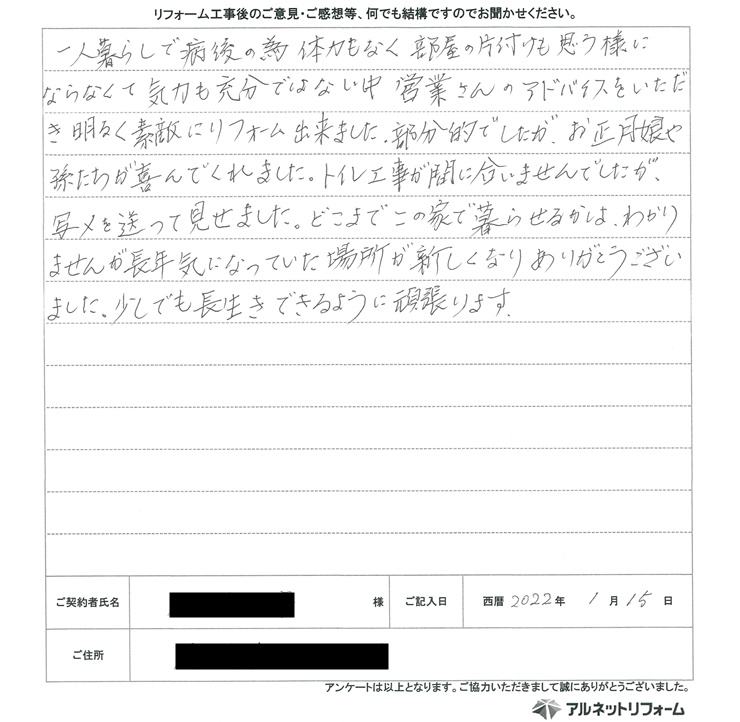 リフォーム工事後のご意見・ご感想等、何でも結構ですのでお聞かせください。
一人暮らしで病後の為 体力もなく 部屋の片付けも思う様に
ならなくて気力も充分ではない中 営業さんのアドバイスをいただ
き 明るく素敵にリフォーム出来ました。部分的でしたが、お正月娘や
孫たちが喜んでくれました。トイレ工事が間に合いませんでしたが、
写メを送って見せました。どこまでこの家で暮らせるかは、わかり
ませんが長年気になっていた場所が新しくなりありがとうござい
ました。少しでも長生きできるように頑張ります。
ご契約者氏名 様 ご記入日 西暦 2022年 1月 15日
ご住所
アンケートは以上となります。ご協力いただきまして誠にありがとうございました。
アルネットリフォーム